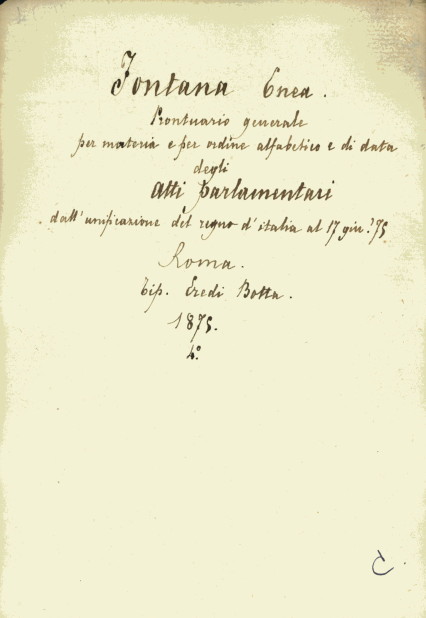 Fontana Enea.
Prontuario generale
per materia e per ordine alfabetico e di data
degli
Atti parlamentari
dall'unificazione del regno d'italia al 17 giu.° 75
Roma.
Tip. Eredi Botta.
1875.
4.°
C.